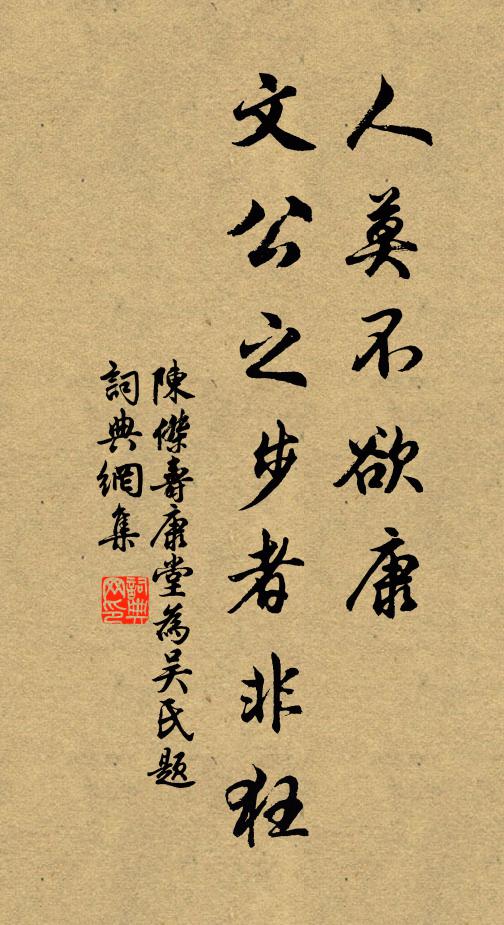 人莫不欲康
文公之步者非狂
陳傑壽康堂為吴氏題
詞典網集
詞典
网印